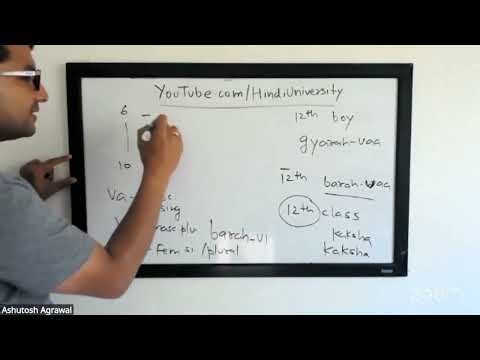 YouTube.com/HindiUniversity
6 –
10
va-
sing
plu barah-vi
fem si/plural
12th boy
gyarah-vaa
12th barah-vaa
12th class
kaksha
kaksha
Ashutosh Agrawal
zoom